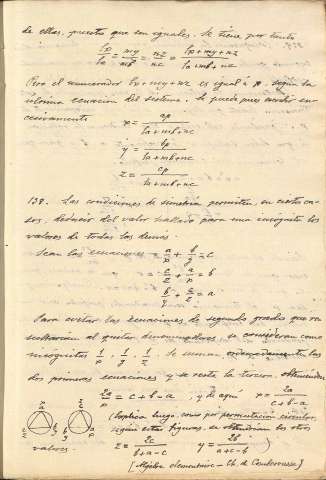 de ellas, puesto que son iguales. Se tiene por tanto
lp/la = my/mb = nz/nc = (lp+my+nz)/(la+mb+nc)
Pero el numerador lp+my+nz es igual á p, según la
última ecuación del sistema. Se puede pues escribir su-
cesivamente x = ap/(la+mb+nc)
y = bp/(la+mb+nc)
z = cp/(la+mb+nc)
138. Las condiciones de simetría permiten, en ciertos ca-
sos, deducir del valor hallado para una incógnita los
valores de todas las demás.
Sean las ecuaciones a/p + b/y = c
c/z + a/p = b
b/y + c/z = a
Para evitar las ecuaciones de segundo grado que re
sultarían al quitar denominadores se consideran como
incógnitas 1/p, 1/y, 1/z. Se suman ordenadamente las
dos primeras ecuaciones y se resta la tercera. obteniéndose
2a/p = c+b-a, y de aquí p = 2a/(c+b-a)
(Explica luego como por permutación circular,
según estas figuras, se obtendrían los otros
valores. z = 2c/(b+a-c) y = 2b/(a+c-b)
[Algebra elementaire - Ch. de Comberousse]